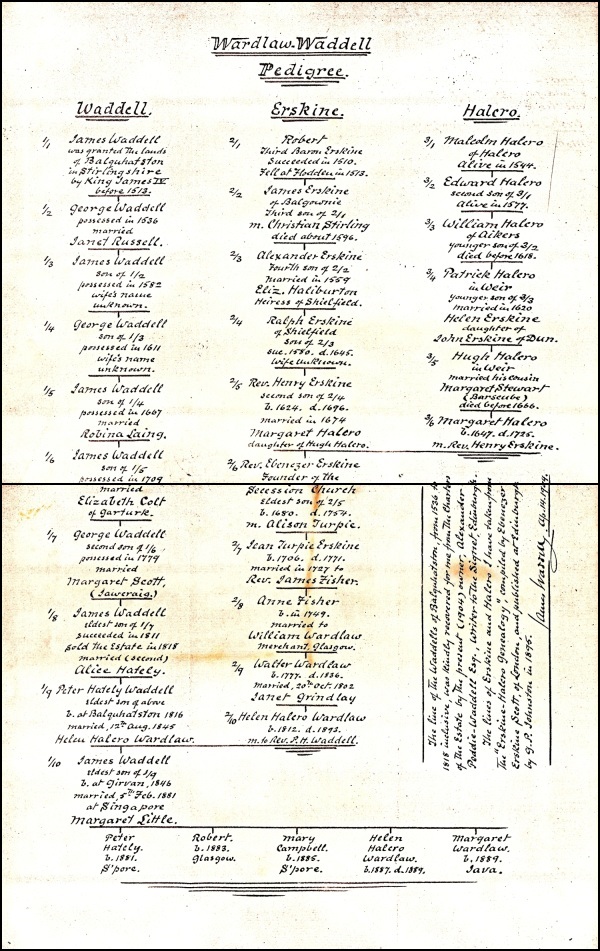 Wardlaw-Waddell
Pedigree.
Waddell.
1/1 James Waddell
was granted the lands
of Balquhatston
in Stirlingshire
by King James IV
before 1513.
1/2 George Waddell
possessed in 1536
married
Janet Russell.
1/3 James Waddell
son of 1/2
possessed in 1582
wife's name
unknown.
1/4 George Waddell
son of 1/3
possessed in 1611
wife's name
unknown.
1/5 James Waddell
son of 1/4
possessed in 1667
married
Robina Laing.
1/6 James Waddell
son of 1/5
possessed in 1709
married
Elizabeth Colt
of Garturk.
1/7 George Waddell
second son of 1/6
possessed in 1779
married
Margaret Scott,
(Laweraig.)
1/8 James Waddell
eldest son of 1/7
succeeded in 1811
sold the Estate in 1818
married (second)
Alice Hately.
1/9 Peter Hately Waddell
eldest son of above
b. at Balquhatston 1816
married, 12th Aug. 1845
Helen Halero Wardlaw.
1/10 James Waddell
eldest son of 1/9
b. at Girvan, 1846
married, 5th Feb. 1881
at Singapore
Margaret Little.
Erskine.
2/1 Robert
Third Baron Erskine
Succeeded in 1510.
Fell at Flodden in 1513.
2/2 James Erskine
of Balgownie
Third son of 2/1
m. Christian Stirling
died about 1596.
2/3 Alexander Erskine
Fourth son of 2/2
married in 1559
Eliz. Haliburton
Heiress of Shielfield.
2/4 Ralph Erskine
of Shielfield
son of 2/3
suc. 1580. d. 1645.
Wife Unknown.
2/5 Rev. Henry Erskine
second son of 2/4
b. 1624. d. 1696.
married in 1674
Margaret Halero
daughter of Hugh Halero.
2/6 Rev. Ebenezer Erskine
Founder of the
Secession Church
eldest son of 2/5
b. 1680. d. 1754.
m. Alison Turpie.
2/7 Jean Turpie Erskine
b. 1706. d. 1771.
married in 1727 to
Rev. James Fisher.
2/8 Anne Fisher
b. in 1749.
married to
William Wardlaw
merchant, Glasgow.
2/9 Walter Wardlaw
b. 1777. d. 1836.
married, 20th Oct. 1802
Janet Grindlay
2/10 Helen Halero Wardlaw
b. 1812. d. 1892.
m. to Rev. P. H. Waddell.
Halero.
3/1 Malcolm Halero
of Halero
Alive in 1544.
3/2 Edward Halero
second son of 3/1
Alive in 1577.
3/3 William Halero
of Aikers
younger son of 3/2
died before 1618.
3/4 Patrick Halero
in Weir
younger son of 3/3
married in 1620
Helen Erskine
daughter of
John Erskine of Dun.
3/5 Hugh Halero
in Weir
married his cousin
Margaret Stewart
(Barscube)
died before 1666.
3/6 Margaret Halero
b. 1647. d. 1725.
m. Rev. Henry Erskine.
The line of The Waddells of Balquhatston, from 1536 to
1818 inclusive, was kindly recovered for me from The Charters
of The Estate by the present (1904) owner, Alexander
Peddie-Waddell Esq., Writer to the Signet, Edinburgh.
The lines of Erskine and Halero I have taken from
The "Erskine-Halero Genealogy," compiled by Ebenezer
Erskine Scott, of London, and published at Edinburgh
by G. P. Johnston in 1895.
James Waddell,
Peter
Hately.
b. 1881.
S'pore.
Robert.
b. 1883.
Glasgow.
Mary
Campbell.
b. 1885.
S'pore.
Helen
Halero
Wardlaw.
b. 1887. d. 1889.
Margaret
Wardlaw.
b. 1889.
Java.